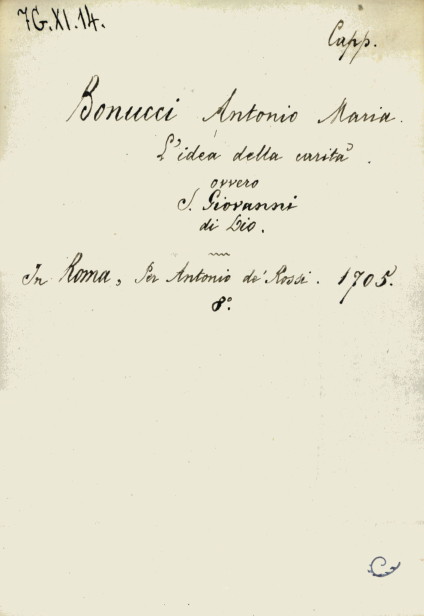 7G.XI.14.
Capp.
Bonucci Antonio Maria.
L'idea della carità.
ovvero
S. Giovanni
di Dio.
In Roma, Per Antonio de' Rossi. 1705.
8º.